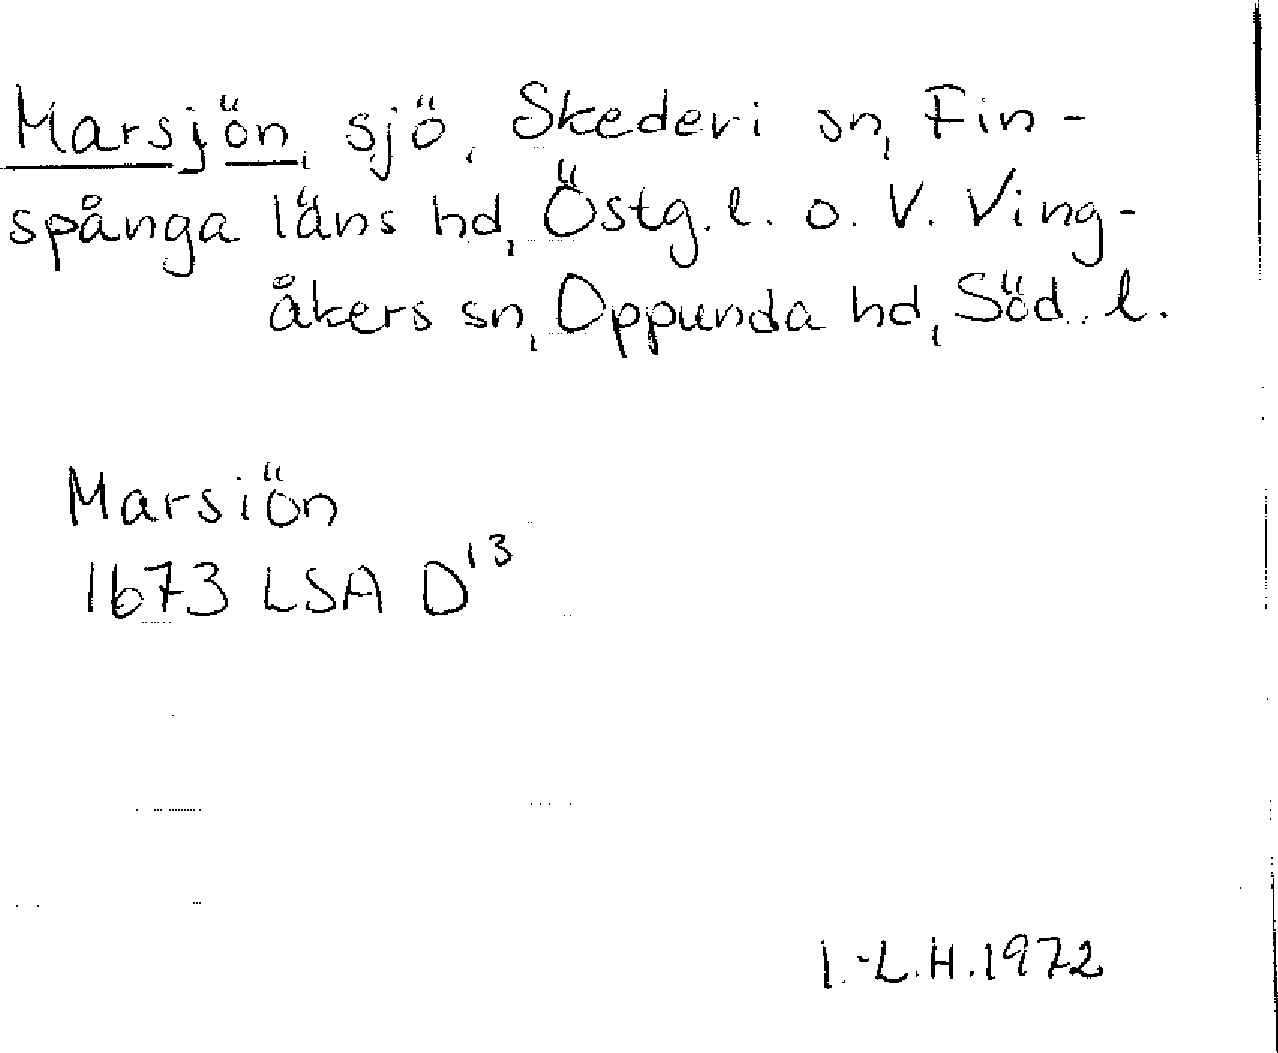 Marsjön, sjö, Skederi sn, Fin-
spånga läns hd, Östg. l. o. V. Ving-
åkers sn, Oppunda hd, Söd. l.
Marsiön
1673 LSA D¹³
I.-L.H. 1972